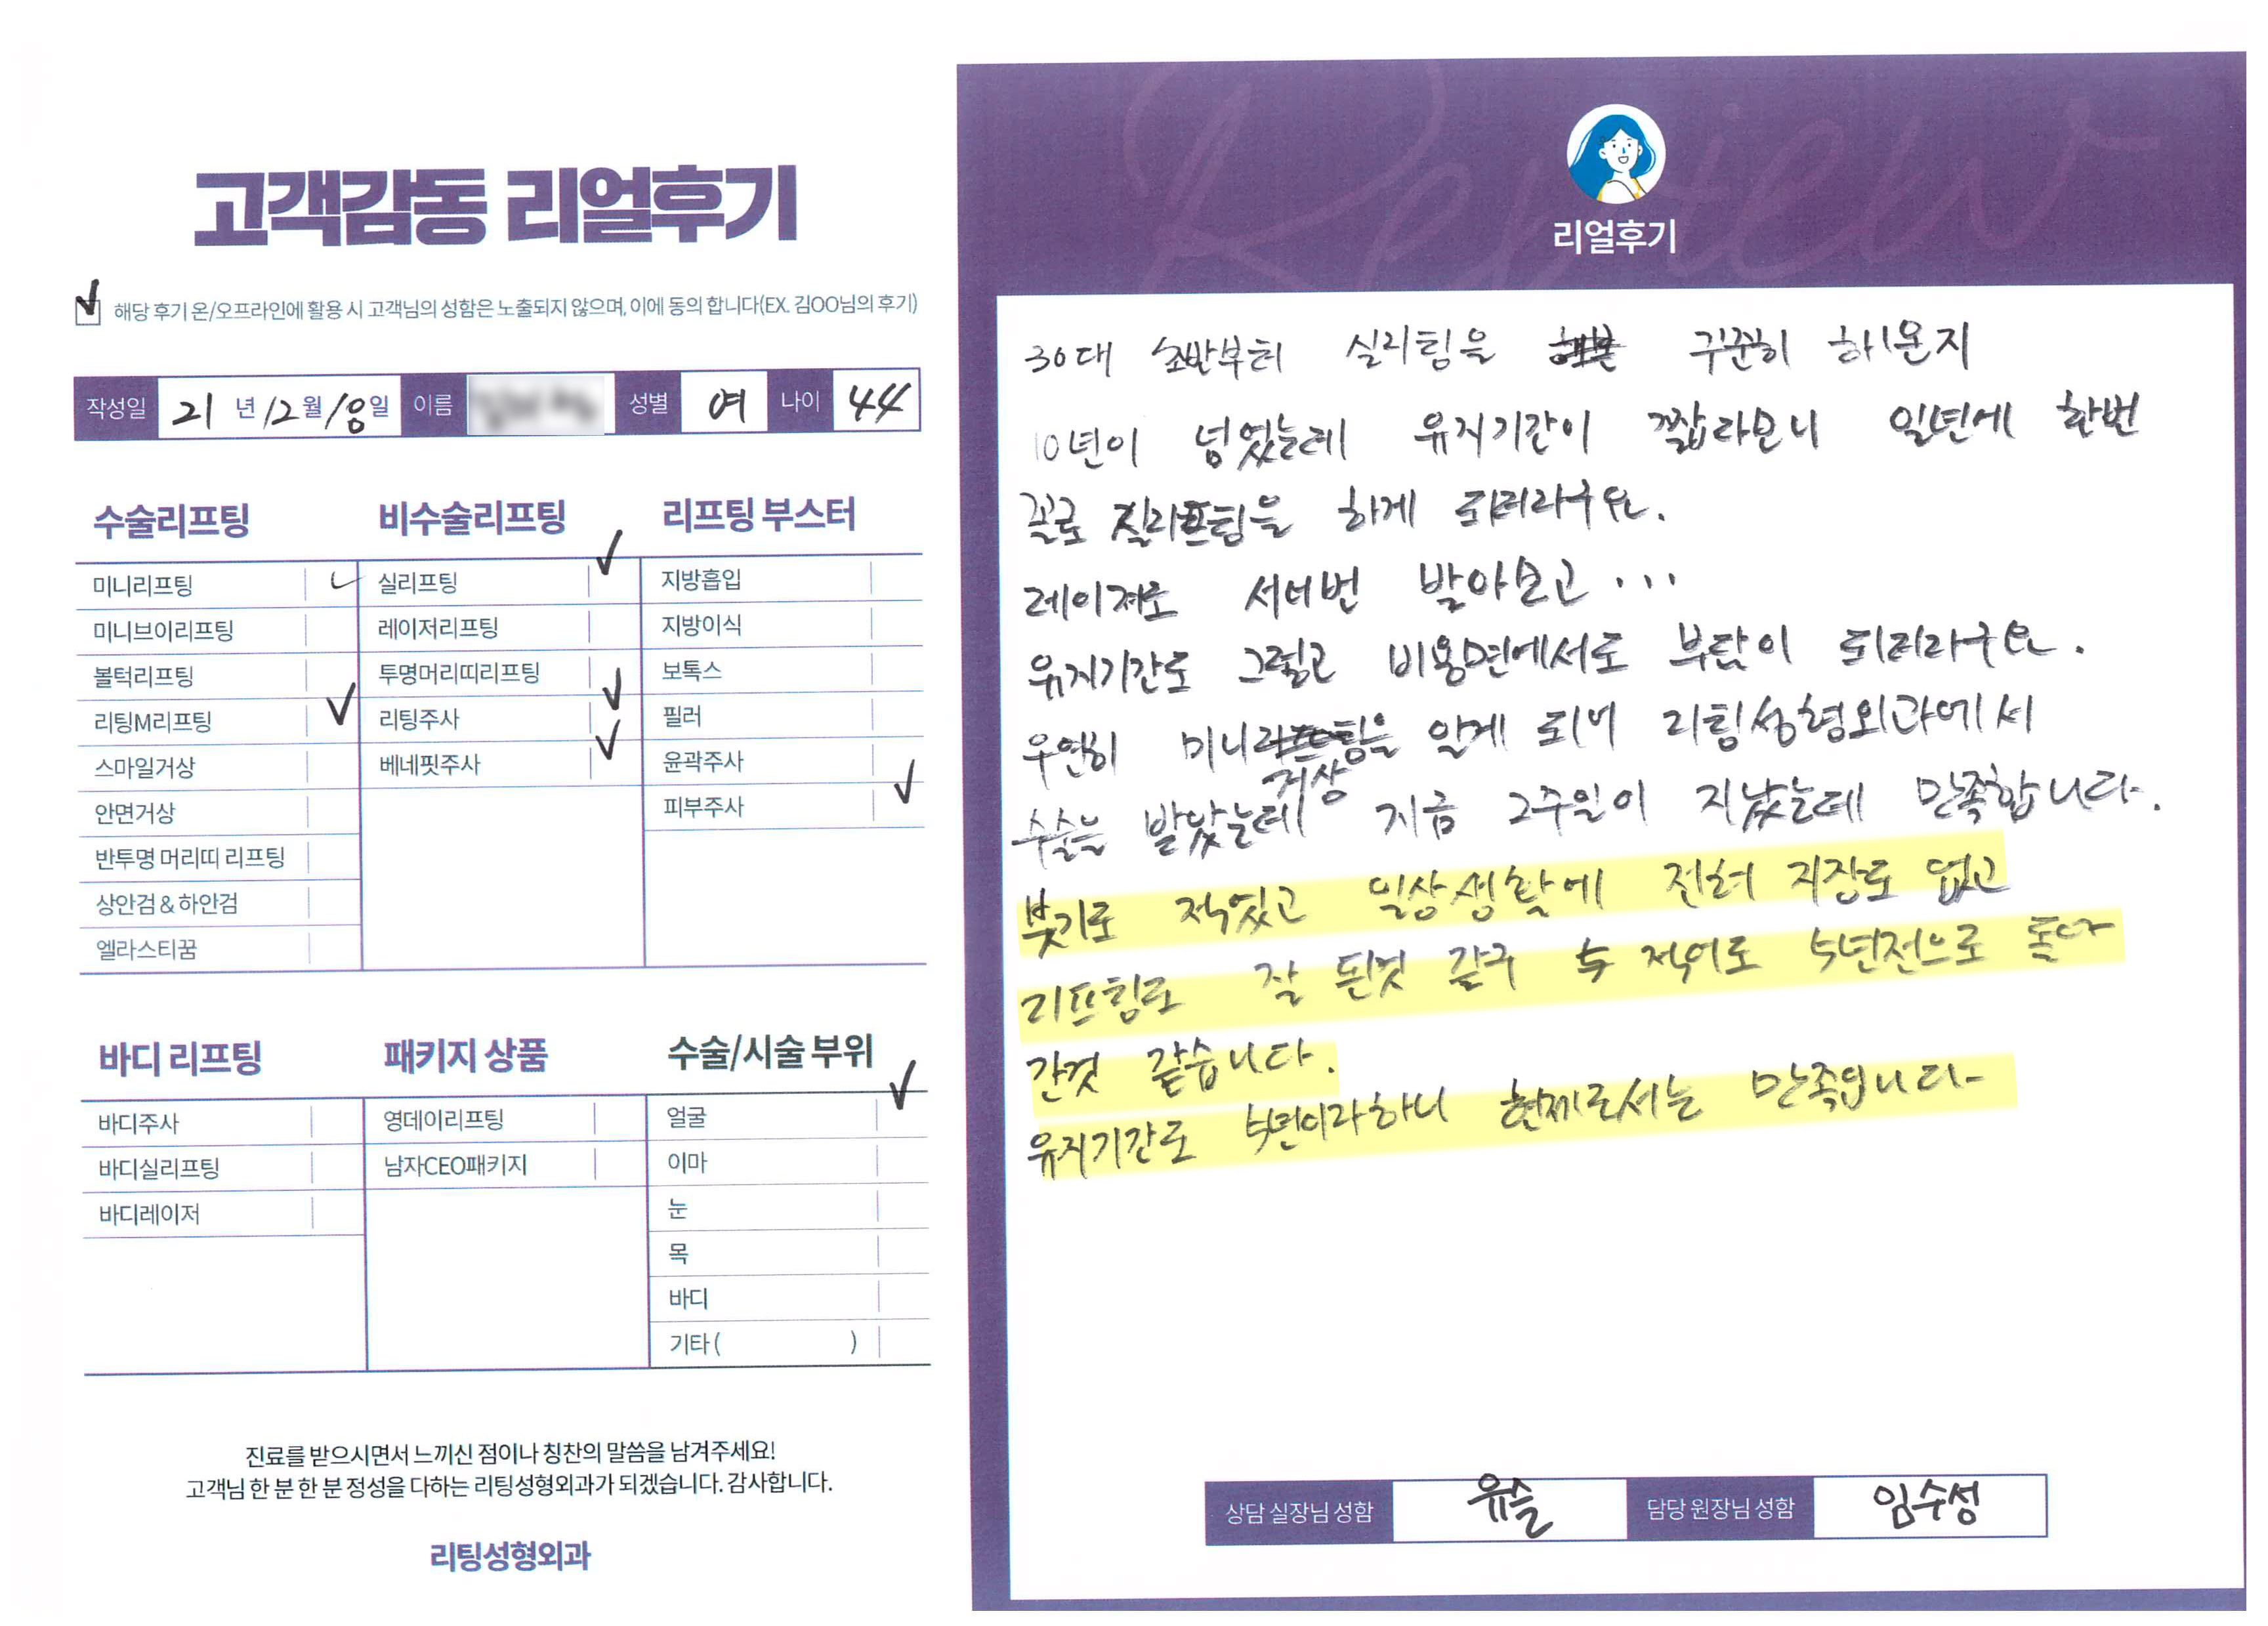 고객감동 리얼후기
해당 후기 온/오프라인에 활용 시 고객님의 성함은 노출되지 않으며, 이에 동의 합니다(EX. 김OO님의 후기)
작성일 21 년 12 월 18 일 이름 성별 여 나이 44
수술리프팅
미니리프팅
미니브이리프팅
볼턱리프팅
리팅M리프팅
스마일거상
안면거상
반투명 머리띠 리프팅
상안검 & 하안검
엘라스티꿈
비수술리프팅
실리프팅
레이저리프팅
투명머리띠리프팅
리팅주사
베네핏주사
리프팅 부스터
지방흡입
지방이식
보톡스
필러
윤곽주사
피부주사
바디 리프팅
바디주사
바디실리프팅
바디레이저
패키지 상품
영데이리프팅
남자CEO패키지
수술/시술 부위
얼굴
이마
눈
목
바디
기타 ( )
진료를 받으시면서 느끼신 점이나 칭찬의 말씀을 남겨주세요!
고객님 한 분 한 분 정성을 다하는 리팅성형외과가 되겠습니다. 감사합니다.
리팅성형외과
Review
리얼후기
30대 초반부터 실리팅을 꾸준히 해온지
10년이 넘었는데 유지기간이 짧다보니 일년에 한번
꼴로 실리프팅을 하게 되더라구요.
레이져도 서너번 받아보고...
유지기간도 그렇고 비용면에서도 부담이 되더라구요.
우연히 미니거상을 알게 되어 리팅성형외과에서
수술을 받았는데 지금 2주일이 지났는데 만족합니다.
붓기도 적었고 일상생활에 전혀 지장도 없고
리프팅도 잘 된것 같구 적어도 5년전으로 돌아
간것 같습니다.
유지기간도 5년이라하니 현재로서는 만족입니다-
상담 실장님 성함 유슬 담당 원장님 성함 임수성